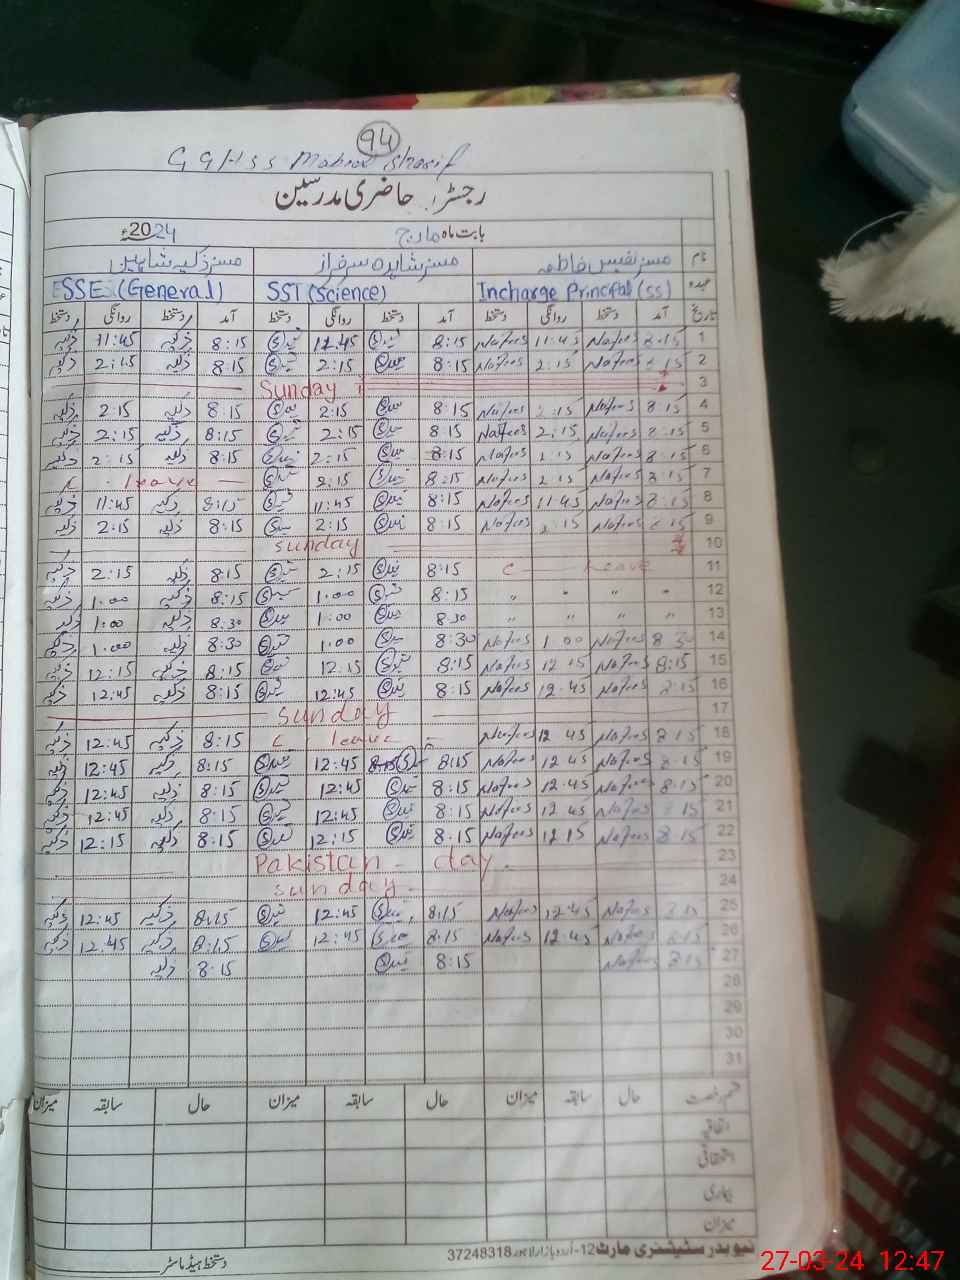 94
G G H S S Mahrok Sharif
رجسٹر حاضری مدرسین
بابت ماہ مارچ 2024ء
نام مسز نفیس فاطمہ مسز شاہدہ سرفراز مسز ذکیہ شاہین
عہدہ Incharge Principal (SS) SST (Science) ESSE (General)
تاریخ آمد دستخط روانگی دستخط آمد دستخط روانگی دستخط آمد دستخط روانگی دستخط
1 8:15 Nafees 11:45 Nafees 8:15 11:45 8:15 ذکیہ 11:45 ذکیہ
2 8:15 Nafees 2:15 Nafees 8:15 2:15 8:15 ذکیہ 2:15 ذکیہ
3 Sunday
4 8:15 Nafees 2:15 Nafees 8:15 2:15 8:15 ذکیہ 2:15 ذکیہ
5 8:15 Nafees 2:15 Nafees 8:15 2:15 8:15 ذکیہ 2:15 ذکیہ
6 8:15 Nafees 2:15 Nafees 8:15 2:15 8:15 ذکیہ 2:15 ذکیہ
7 8:15 Nafees 2:15 Nafees 8:15 2:15 C leave
8 8:15 Nafees 11:45 Nafees 8:15 11:45 8:15 ذکیہ 11:45 ذکیہ
9 8:15 Nafees 2:15 Nafees 8:15 2:15 8:15 ذکیہ 2:15 ذکیہ
10 Sunday
11 C leave 8:15 2:15 8:15 ذکیہ 2:15 ذکیہ
12 " " " " 8:15 1:00 8:15 ذکیہ 1:00 ذکیہ
13 " " " " 8:30 1:00 8:30 ذکیہ 1:00 ذکیہ
14 8:30 Nafees 1:00 Nafees 8:30 1:00 8:30 ذکیہ 1:00 ذکیہ
15 8:15 Nafees 12:15 Nafees 8:15 12:15 8:15 ذکیہ 12:15 ذکیہ
16 8:15 Nafees 12:45 Nafees 8:15 12:45 8:15 ذکیہ 12:45 ذکیہ
17 Sunday
18 8:15 Nafees 12:45 Nafees C leave 8:15 ذکیہ 12:45 ذکیہ
19 8:15 Nafees 12:45 Nafees 8:15 12:45 8:15 ذکیہ 12:45 ذکیہ
20 8:15 Nafees 12:45 Nafees 8:15 12:45 8:15 ذکیہ 12:45 ذکیہ
21 8:15 Nafees 12:45 Nafees 8:15 12:45 8:15 ذکیہ 12:45 ذکیہ
22 8:15 Nafees 12:15 Nafees 8:15 12:15 8:15 ذکیہ 12:15 ذکیہ
23 Pakistan day
24 Sunday
25 8:15 Nafees 12:45 Nafees 8:15 12:45 8:15 ذکیہ 12:45 ذکیہ
26 8:15 Nafees 12:45 Nafees 8:15 12:45 8:15 ذکیہ 12:45 ذکیہ
27 8:15 Nafees 8:15 8:15 ذکیہ
28
29
30
31
قسم رخصت حال سابقہ میزان حال سابقہ میزان حال سابقہ میزان
اتفاقی
استحقاقی
بیماری
میزان
نیو بدر سٹیشنری مارٹ 12-اردو بازار لاہور 37248318
دستخط ہیڈ ماسٹر
27-03-24 12:47